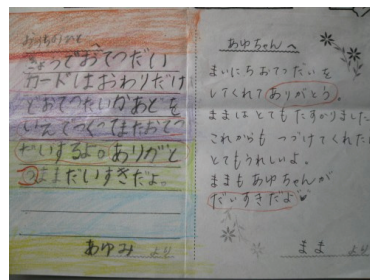 きょうでおてつだい
カードはおわりだけ
どおてつだいがあとを
いえでつくってまたおてつ
だいするよ。ありがと
う。ままだいすきだよ。
あゆみ より
あゆちゃんへ
まいにちおてつだいを
してくれてありがとう。
ままはとてもたすかりました
これからもつづけてくれた
とてもうれしいよ。
ままもあゆちゃんが
だいすきだよ
まま より